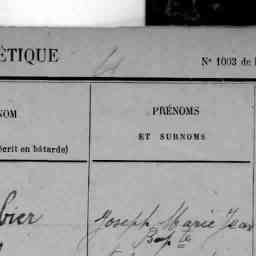 ÉTIQUE
N° 1003 de l
NOM
PRÉNOMS
ET SURNOMS
écrit en bâtarde)
bier
Joseph Marie Jean
Bapte